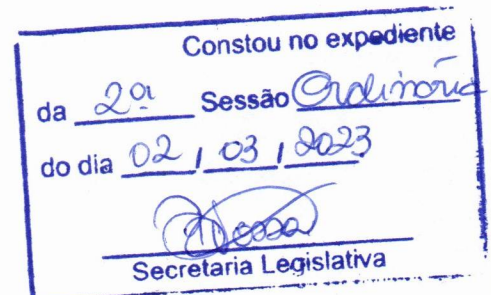 Constou no expediente
da 2ª Sessão Ordinária
do dia 02 / 03 / 2023
Secretaria Legislativa